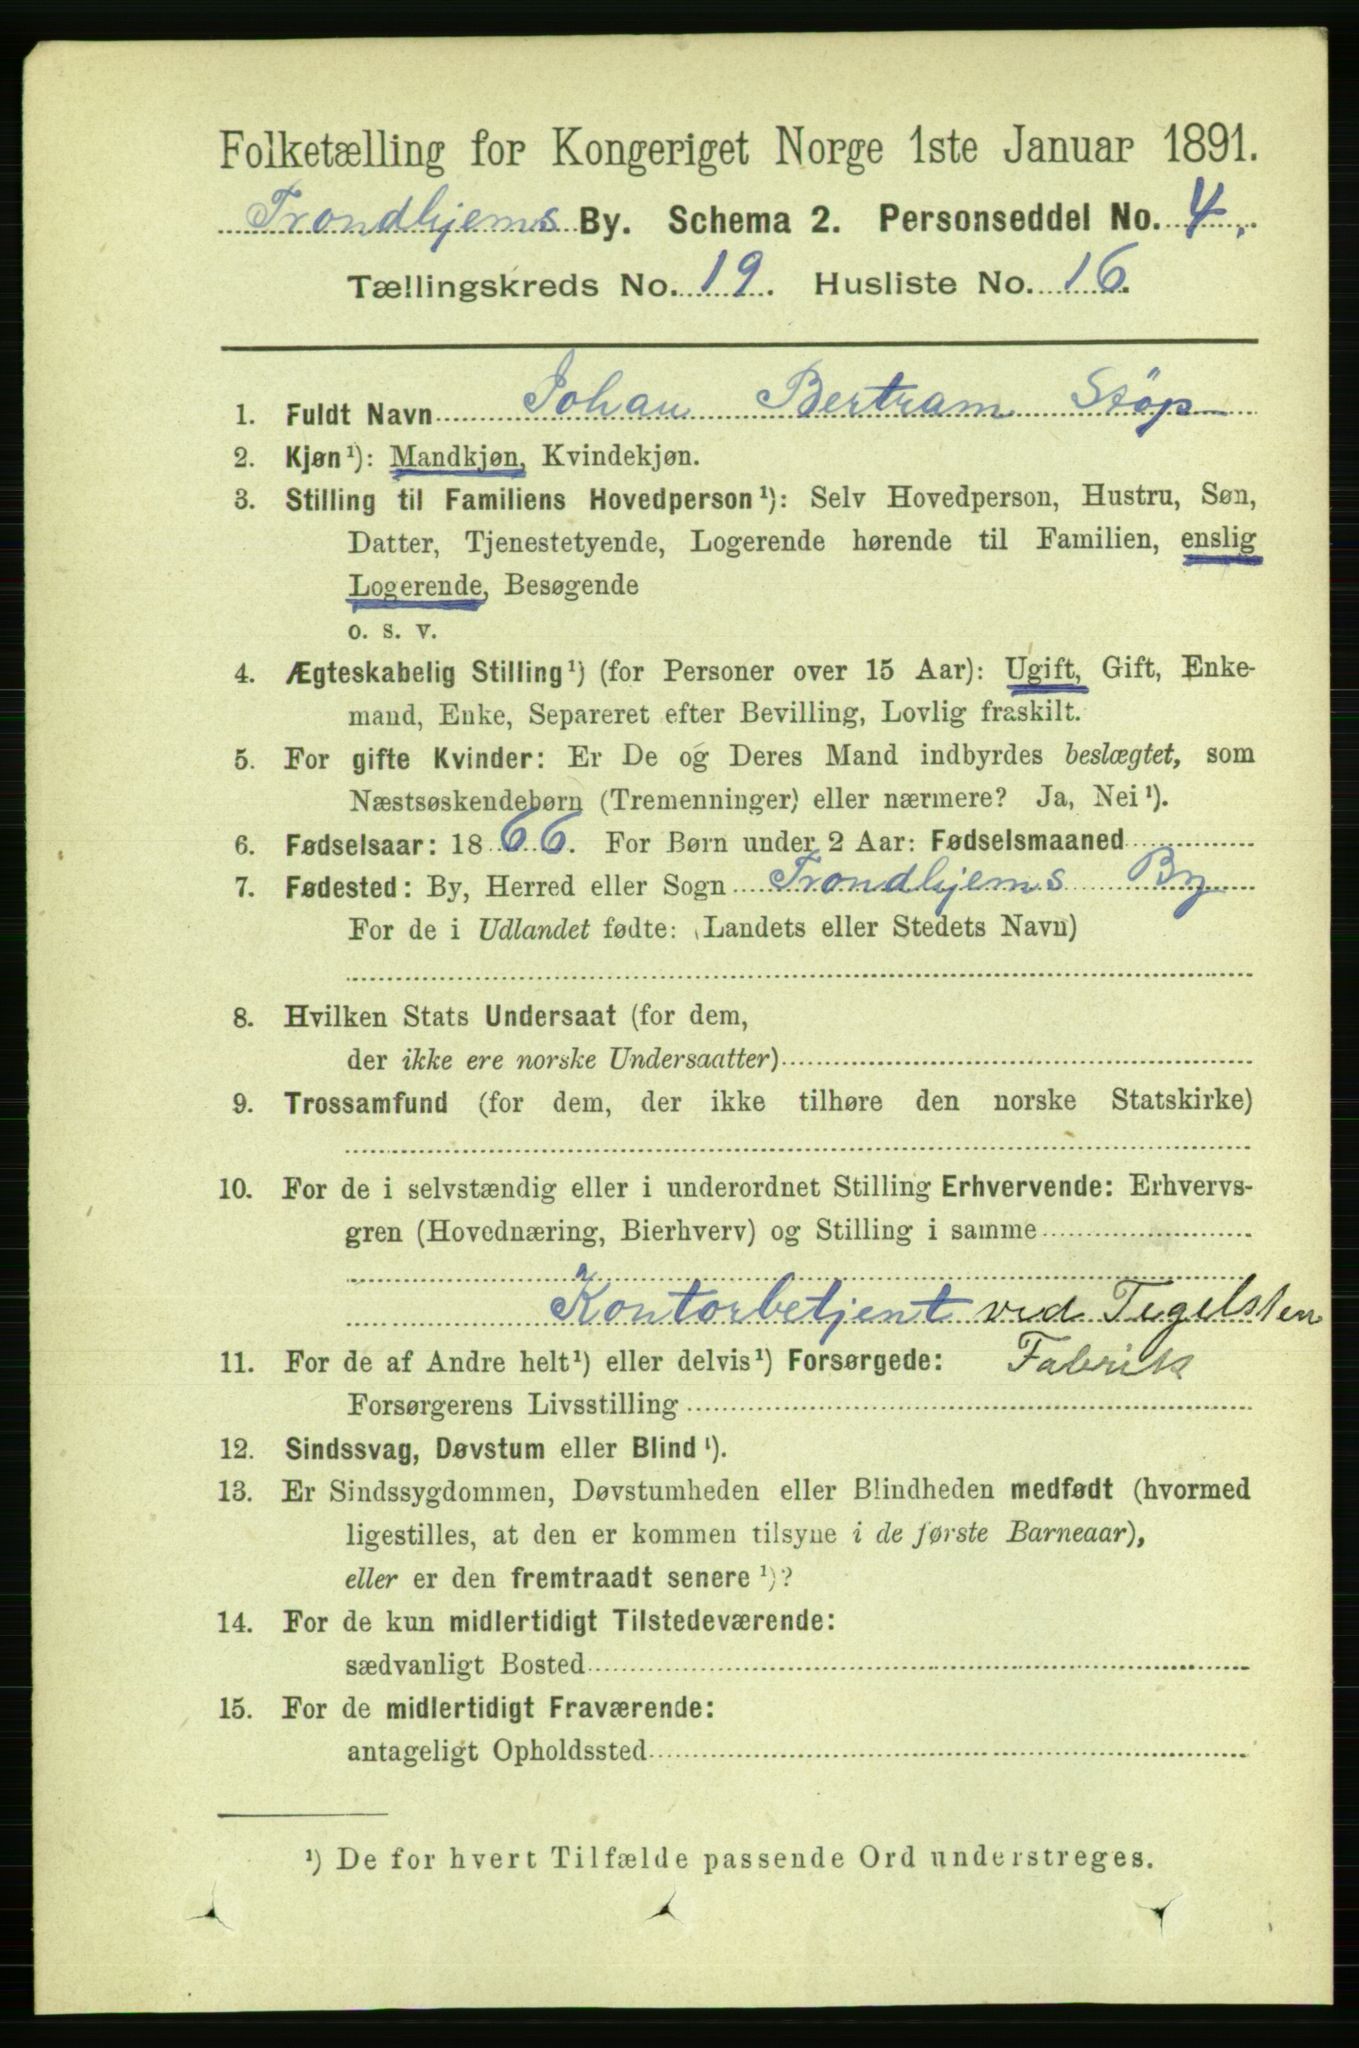 Folketælling for Kongeriget Norge 1ste Januar 1891.
Trondhjems By. Schema 2. Personseddel No. 4.
Tællingskreds No. 19. Husliste No. 16.
1. Fuldt Navn Johan Bertram Støp
2. Kjøn¹): Mandkjøn, Kvindekjøn.
3. Stilling til Familiens Hovedperson¹): Selv Hovedperson, Hustru, Søn,
Datter, Tjenestetyende, Logerende hørende til Familien, enslig
Logerende, Besøgende
o. s. v.
4. Ægteskabelig Stilling¹) (for Personer over 15 Aar): Ugift, Gift, Enke-
mand, Enke, Separeret efter Bevilling, Lovlig fraskilt.
5. For gifte Kvinder: Er De og Deres Mand indbyrdes beslægtet, som
Næstsøskendebørn (Tremenninger) eller nærmere? Ja, Nei¹).
6. Fødselsaar: 1866. For Børn under 2 Aar: Fødselsmaaned
7. Fødested: By, Herred eller Sogn Trondhjems By
For de i Udlandet fødte: (Landets eller Stedets Navn)
8. Hvilken Stats Undersaat (for dem,
der ikke ere norske Undersaatter)
9. Trossamfund (for dem, der ikke tilhøre den norske Statskirke)
10. For de i selvstændig eller i underordnet Stilling Erhvervende: Erhvervs-
gren (Hovednæring, Bierhverv) og Stilling i samme
Kontorbetjent ved Tegelsten
11. For de af Andre helt¹) eller delvis¹) Forsørgede: Fabrik
Forsørgerens Livsstilling
12. Sindssvag, Døvstum eller Blind¹).
13. Er Sindssygdommen, Døvstumheden eller Blindheden medfødt (hvormed
ligestilles, at den er kommen tilsyne i de første Barneaar),
eller er den fremtraadt senere¹)?
14. For de kun midlertidigt Tilstedeværende:
sædvanligt Bosted
15. For de midlertidigt Fraværende:
antageligt Opholdssted
¹) De for hvert Tilfælde passende Ord understreges.